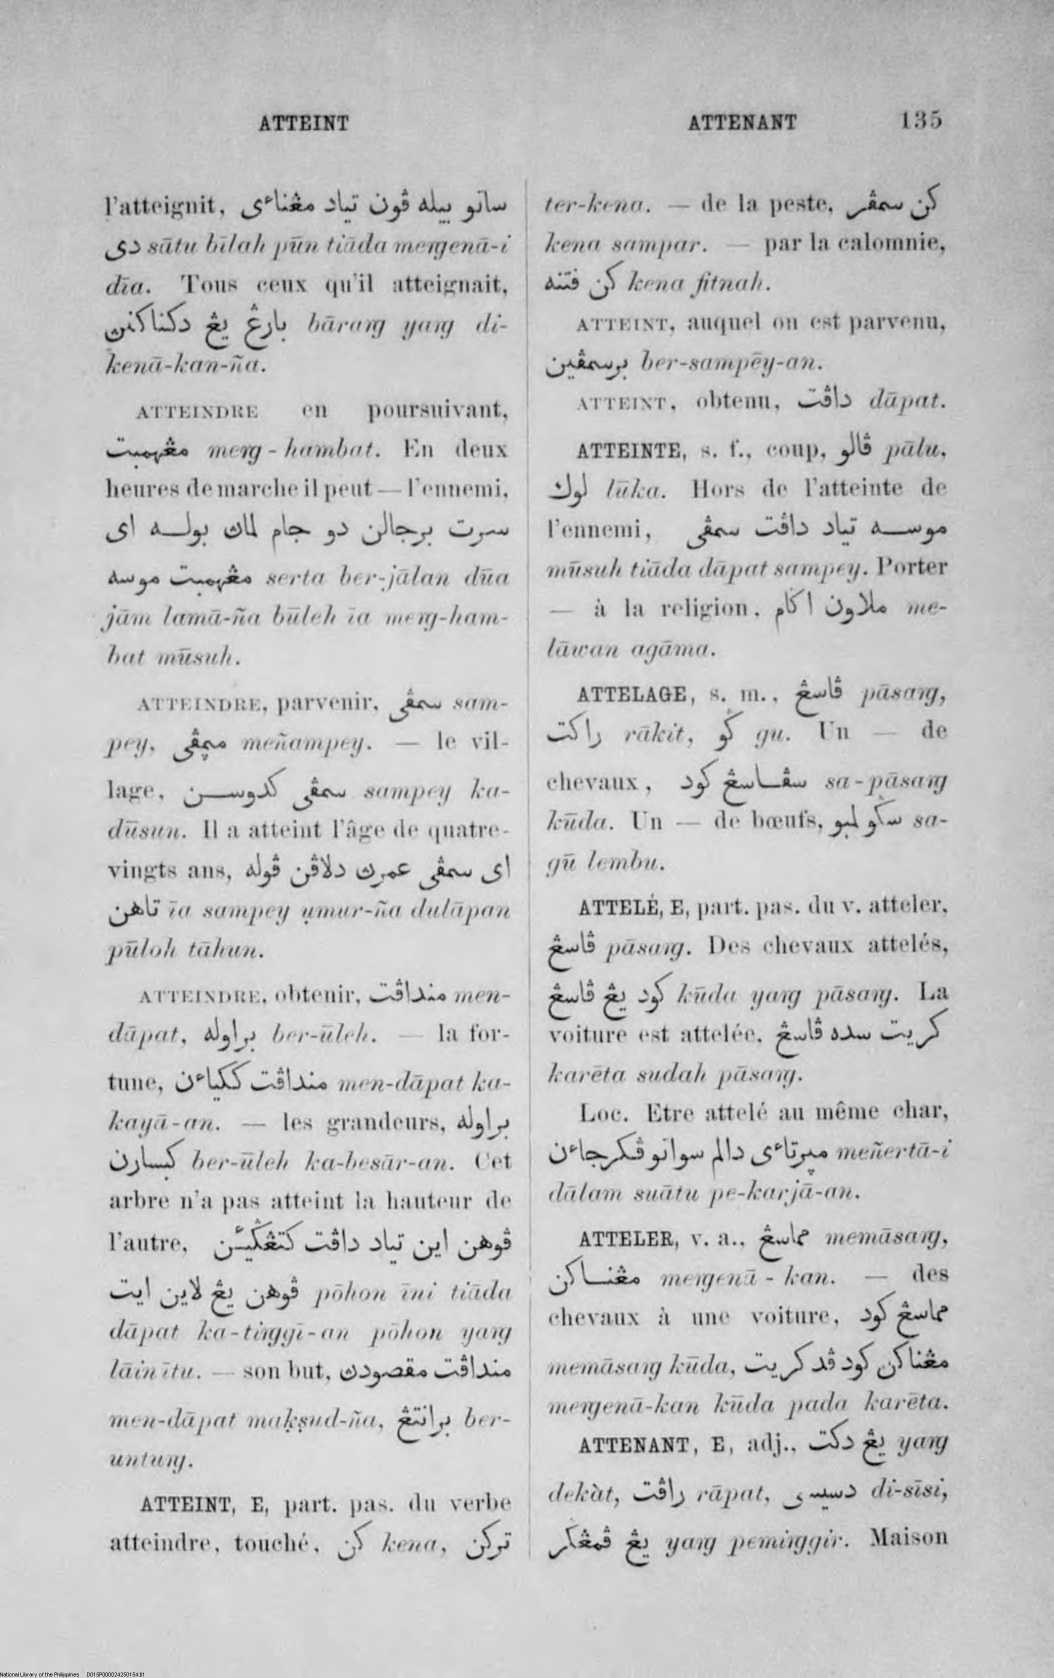 ATTEINT
l'atteignit, ساتو بيله ڤون تياد مڠناءى
دى sātu bīlah pūn tiāda meŋgenā-i
dīa. Tous ceux qu'il atteignait,
بارڠ يڠ دكناكنڽ bāraŋg yaŋg di-
kenā-kan-ña.
ATTEINDRE en poursuivant,
مڠهمبت meŋg-hambat. En deux
heures de marche il peut — l'ennemi,
سرت برجالن دو جام لماڽ بوله اى
مڠهمبت موسه serta ber-jālan dūa
jām lamā-ña būleh īa meŋg-ham-
bat mūsuh.
ATTEINDRE, parvenir, سمڤى sam-
pey, مڽمڤى meñampey. — le vil-
lage, سمڤى كدوسن sampey ka-
dūsun. Il a atteint l'âge de quatre-
vingts ans, اى سمڤى عمرڽ دلاڤن ڤوله
تاهن īa sampey ụmur-ña dulāpan
pūloh tāhun.
ATTEINDRE, obtenir, منداڤت men-
dāpat, براوله ber-ūleh. — la for-
tune, منداڤت ككياءن men-dāpat ka-
kayā-an. — les grandeurs, براوله
كبسارن ber-ūleh ka-besār-an. Cet
arbre n'a pas atteint la hauteur de
l'autre, ڤوهن اين تياد داڤت كتڠݢيئن
ڤوهن يڠ لاين ايت pōhon īni tiāda
dāpat ka-tiŋggī-an pōhon yaŋg
lāin ītu. — son but, منداڤت مقصودڽ
men-dāpat maḳṣud-ña, برانتڠ ber-
untuŋg.
ATTEINT, E, part. pas. du verbe
atteindre, touché, كن kena, تركن
ATTENANT 135
ter-kena. — de la peste, كن سمڤر
kena sampar. — par la calomnie,
كن فتنه kena fitnah.
ATTEINT, auquel on est parvenu,
برسمڤين ber-sampēy-an.
ATTEINT, obtenu, داڤت dāpat.
ATTEINTE, s. f., coup, ڤالو pālu,
لوك lūka. Hors de l'atteinte de
l'ennemi, موسه تياد داڤت سمڤى
mūsuh tiāda dāpat sampey. Porter
— à la religion, ملاون اݢام me-
lāwan agāma.
ATTELAGE, s. m., ڤاسڠ pāsaŋg,
راكت rākit, ݢو gu. Un — de
chevaux, سڤاسڠ كود sa-pāsaŋg
kūda. Un — de bœufs, سݢو لمبو sa-
gū lembu.
ATTELÉ, E, part. pas. du v. atteler,
ڤاسڠ pāsaŋg. Des chevaux attelés,
كود يڠ ڤاسڠ kūda yaŋg pāsaŋg. La
voiture est attelée, كريت سده ڤاسڠ
karēta sudah pāsaŋg.
Loc. Etre attelé au même char,
مڽرتاءى دالم سواتو ڤكرجاءن meñertā-i
dālam suātu pe-karjā-an.
ATTELER, v. a., مماسڠ memāsaŋg,
مڠناكن meŋgenā-kan. — des
chevaux à une voiture, مماسڠ كود
memāsaŋg kūda, مڠناكن كود ڤد كريت
meŋgenā-kan kūda pada karēta.
ATTENANT, E, adj., يڠ دكت yaŋg
dekàt, راڤت rāpat, دسيسى di-sīsi,
يڠ ڤمڠݢر yaŋg pemiŋggir. Maison
National Library of the Philippines